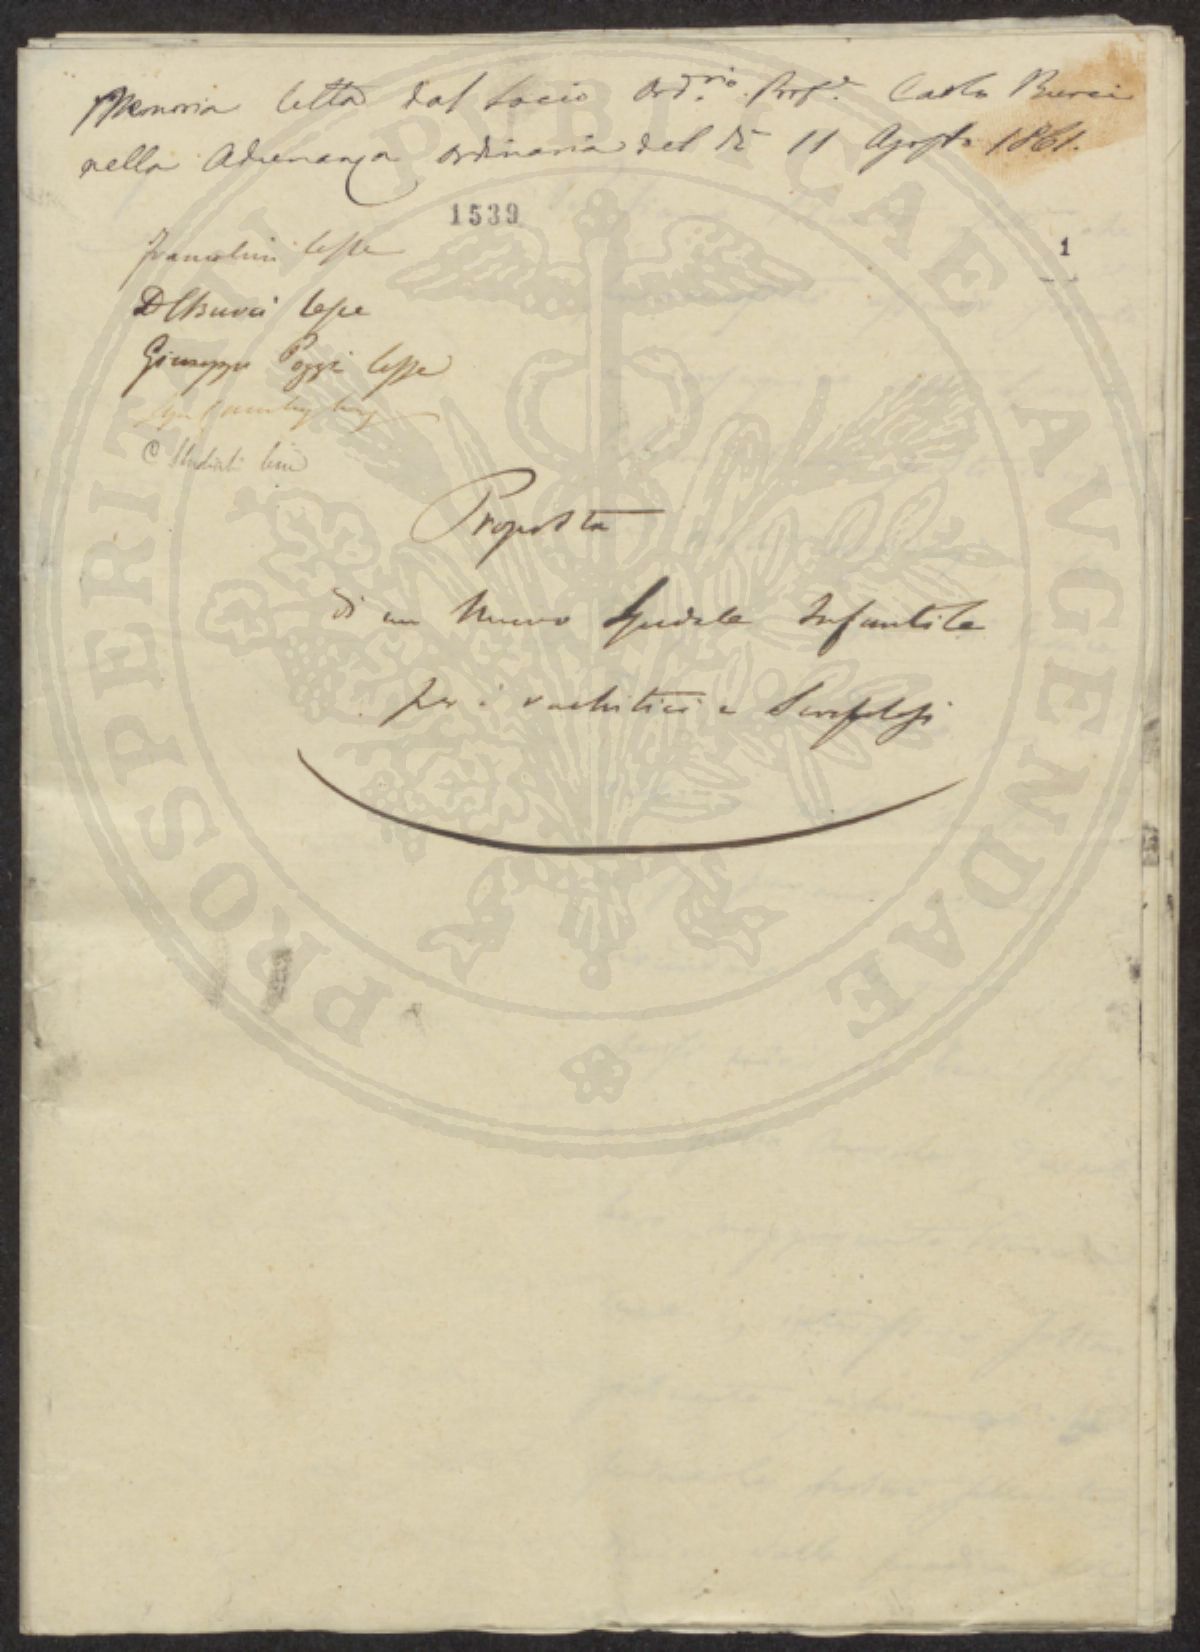 Memoria letta dal Socio Ord.rio Prof.e Carlo Burci
nella Adunanza ordinaria del dì 11 Agosto 1861.
1539
1
Francolini lesse
lesse
Giuseppe Poggi lesse
C Studiati
Proposta
di un Nuovo Spedale Infantile
per i rachitici e Scrofolosi
PROSPERITATI PUBLICAE AVGENDAE